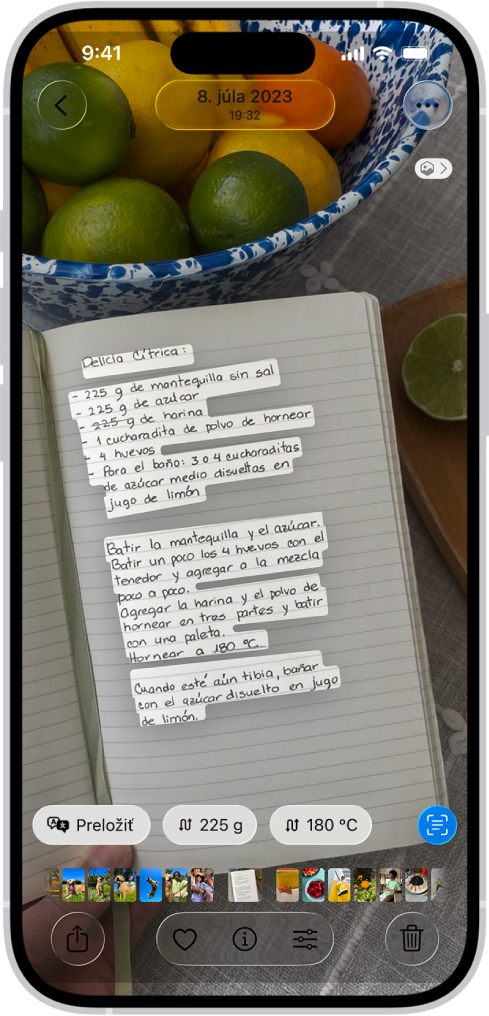 9:41
8. júla 2023
19:32
Delicia Cítrica:
- 225 g de mantequilla sin sal
- 225 g de azúcar
- 225 g de harina
- 1 cucharadita de polvo de hornear
- 4 huevos
- Para el baño: 3 o 4 cucharaditas
de azúcar medio disueltas en
jugo de limón
Batir la mantequilla y el azúcar.
Batir un poco los 4 huevos con el
tenedor y agregar a la mezcla
poco a poco.
Agregar la harina y el polvo de
hornear en tres partes y batir
con una paleta.
Hornear a 180 °C.
Cuando esté aún tibia, bañar
con el azúcar disuelto en jugo
de limón.
Preložiť
225 g
180 °C